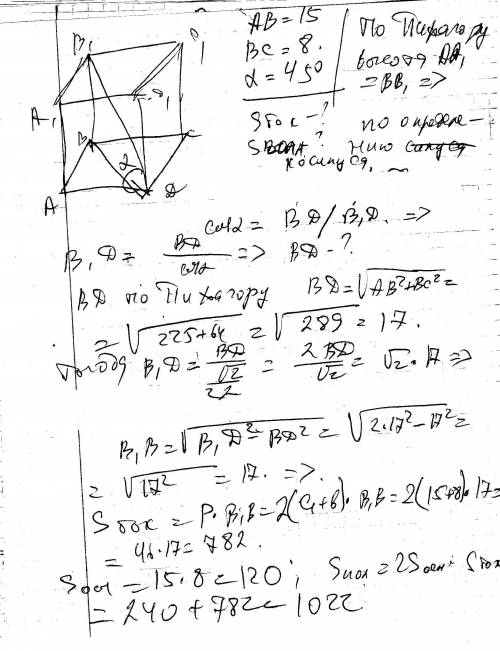 B₁ C₁
A₁ D₁
B C
2
A D
AB = 15
BC = 8.
α = 450
Sбок - ?
S ?
По Пифагору
высота DD₁
= BB₁ =>
по определе-
нию синуса
косинуса,
cos α = BD / B₁D. =>
B₁D = BD / cos α => BD - ?
BD по Пифагору BD = √AB² + BC² =
= √225 + 64 = √289 = 17.
тогда B₁D = BD / √2/2 = 2BD / √2 = √2 · 17 =>
B₁B = √B₁D² - BD² = √2·17² - 17² =
= √17² = 17. =>.
Sбок = P · B₁B = 2(a + b) · B₁B = 2(15 + 8) · 17 =
= 46 · 17 = 782.
Sосн = 15 · 8 = 120; Sпол = 2Sосн + Sбок
= 240 + 782 = 1022